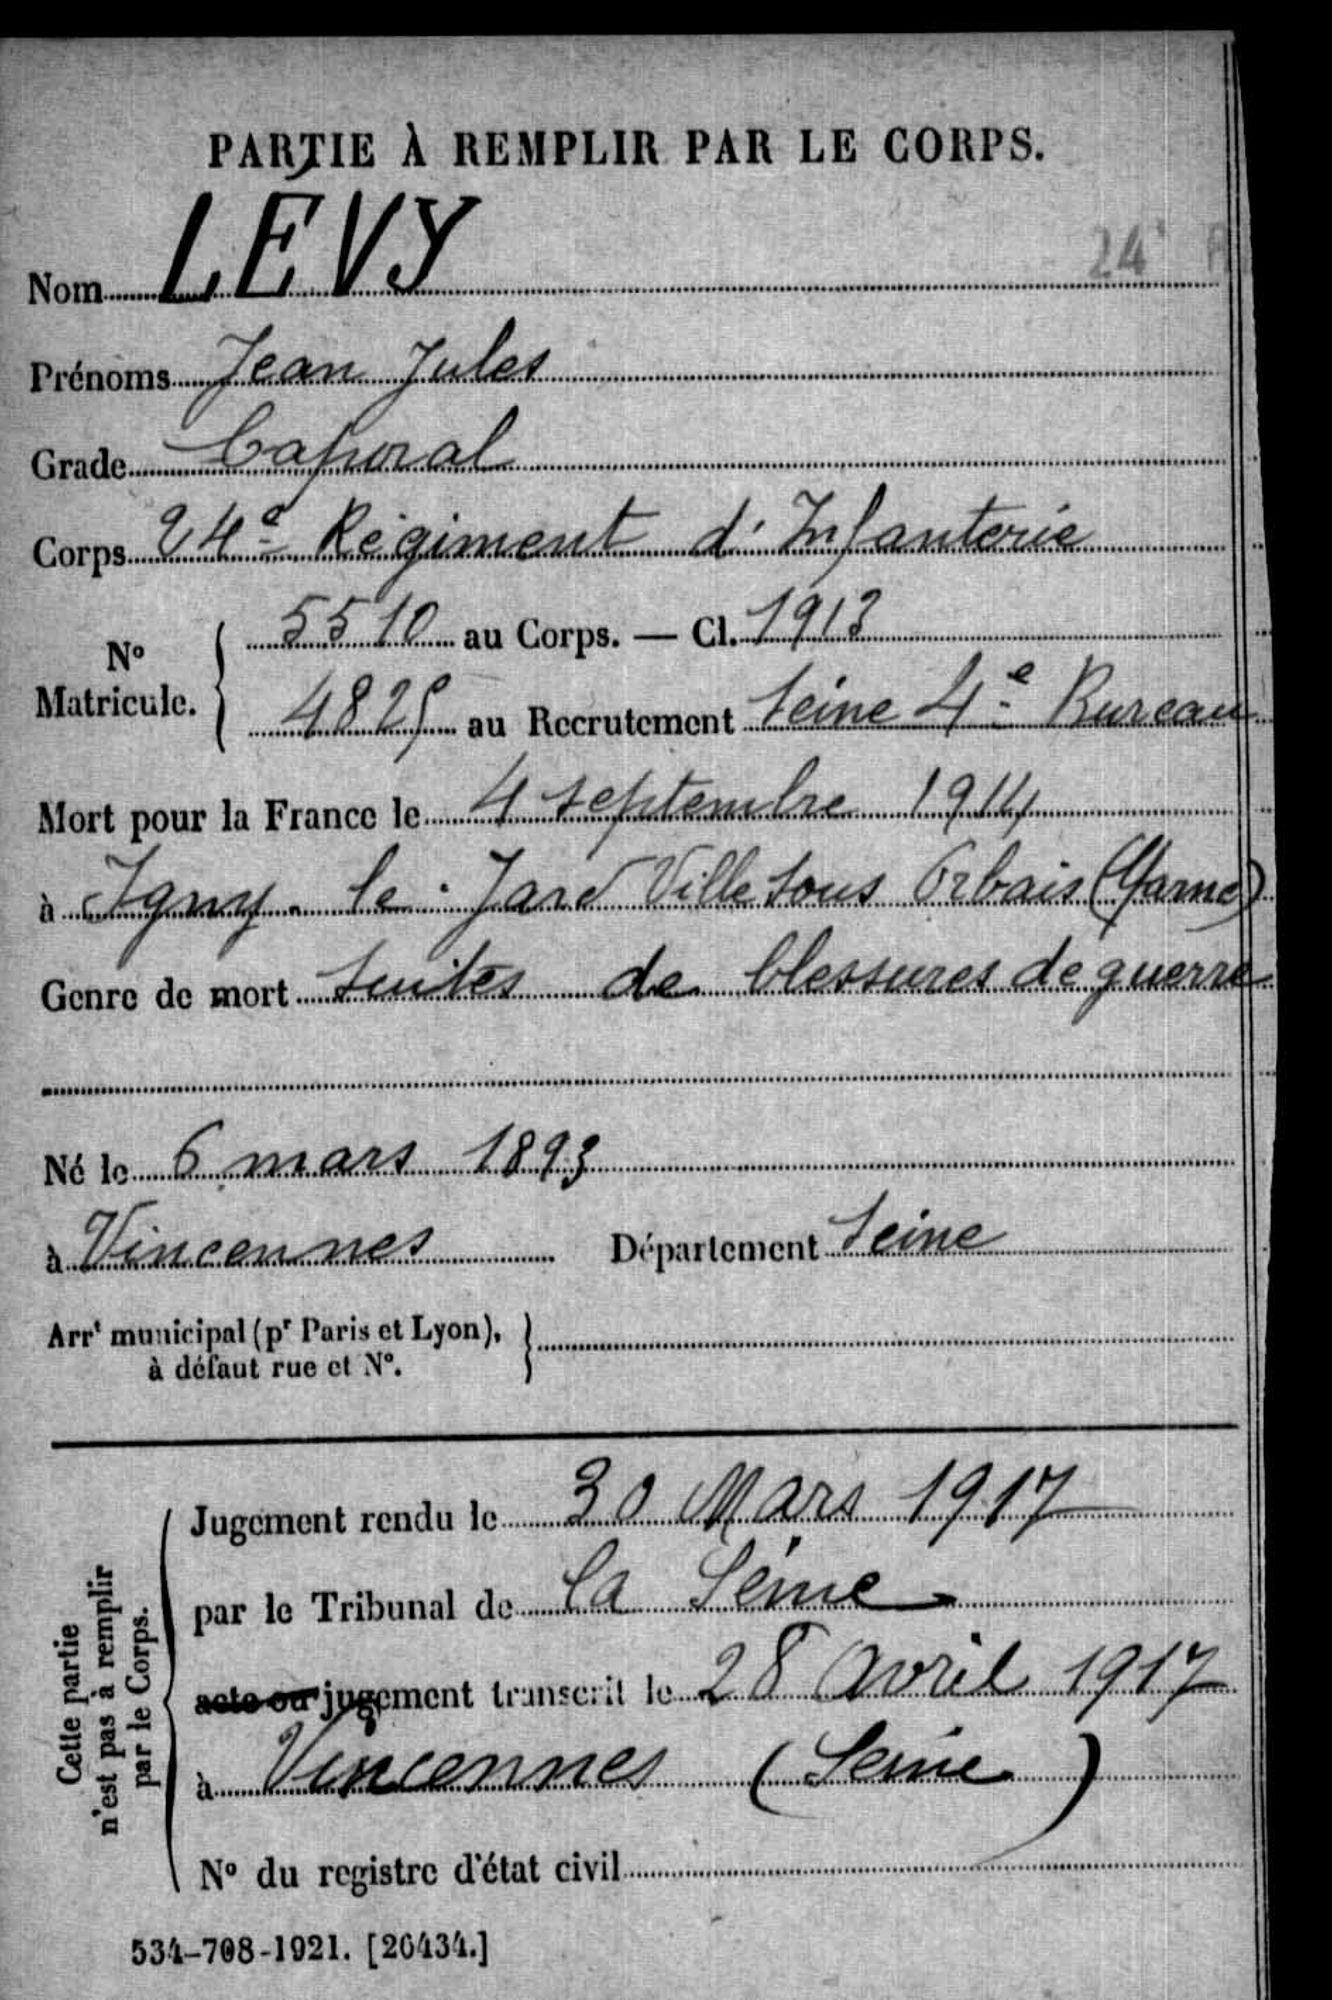 PARTIE À REMPLIR PAR LE CORPS.
24
Nom LÉVY
Prénoms Jean Jules
Grade Caporal
Corps 24e Régiment d'Infanterie
No Matricule. 5510 au Corps. — Cl. 1913
4825 au Recrutement Seine 4e Bureau
Mort pour la France le 4 septembre 1914
à Igny-le-Jard Ville sous Orbais (Marne)
Genre de mort suites de blessures de guerre
Né le 6 mars 1893
à Vincennes Département Seine
Arrt municipal (pr Paris et Lyon),
à défaut rue et No.
Cette partie
n'est pas à remplir
par le Corps.
Jugement rendu le 30 Mars 1917
par le Tribunal de la Seine
acte ou jugement transcrit le 28 avril 1917
à Vincennes (Seine)
No du registre d'état civil
534-708-1921. [26434.]